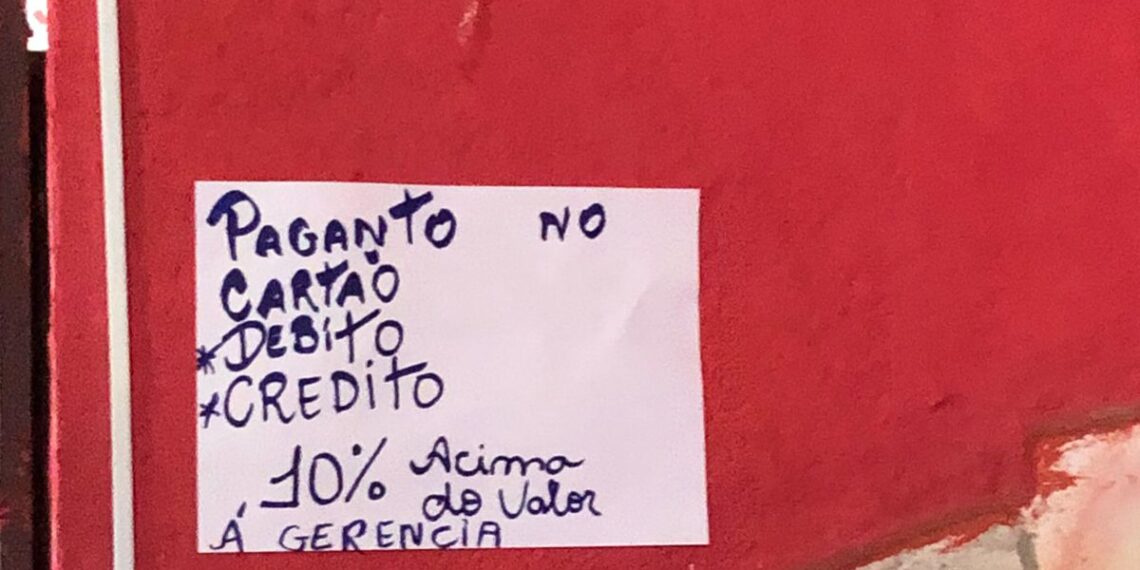 PAGANTO NO
CARTÃO
*DEBITO
*CREDITO
10% Acima
do Valor
Á GERENCIA